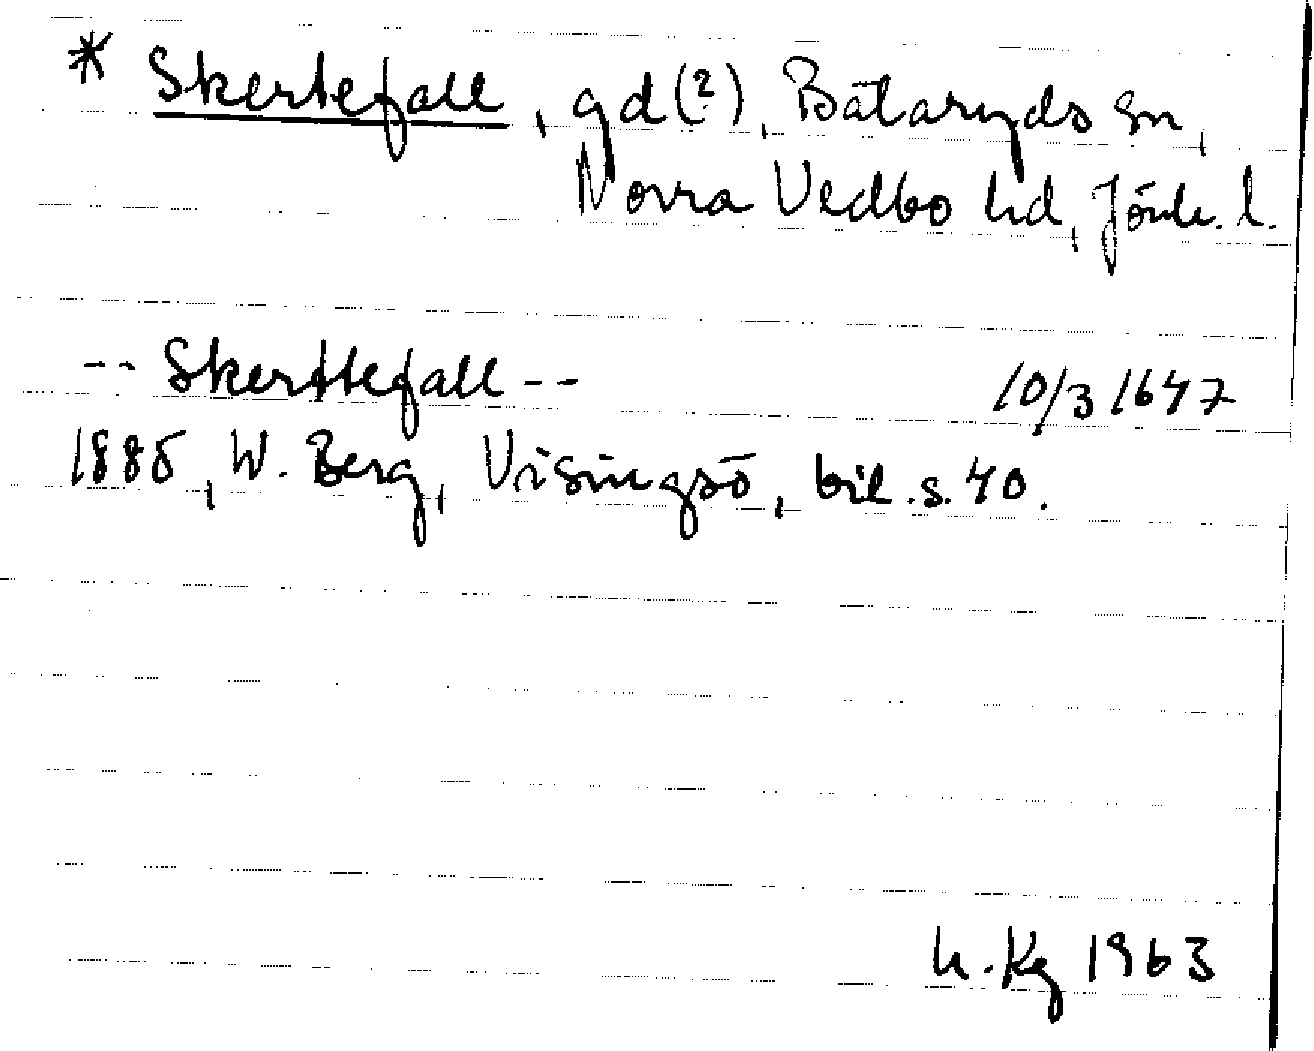 * Skertefall, gd(?), Bälaryds sn,
Norra Vedbo hd, Jönk. l.
-- Skerttefall -- 10/3 1647
1885, W. Berg, Visingsö, bil. s. 40.
h. Kg 1963